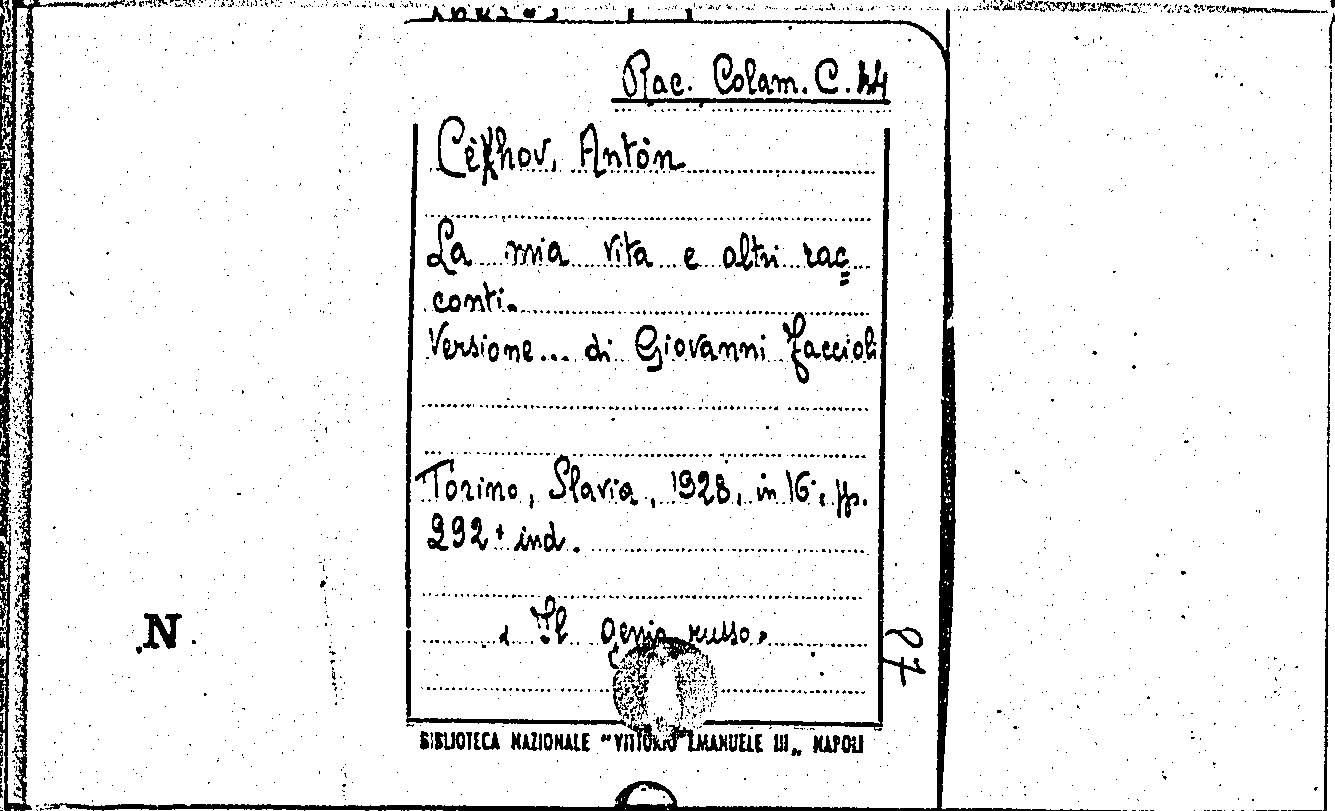 Rac. Colam. C. 44
Cèkhov, Antòn
La mia vita e altri rac=
conti.
Versione... di Giovanni Faccioli
Torino, Slavia, 1928, in 16°, pp.
292 + ind.
« Il genio russo »
87
N
BIBLIOTECA NAZIONALE "VITTORIO EMANUELE III„ NAPOLI